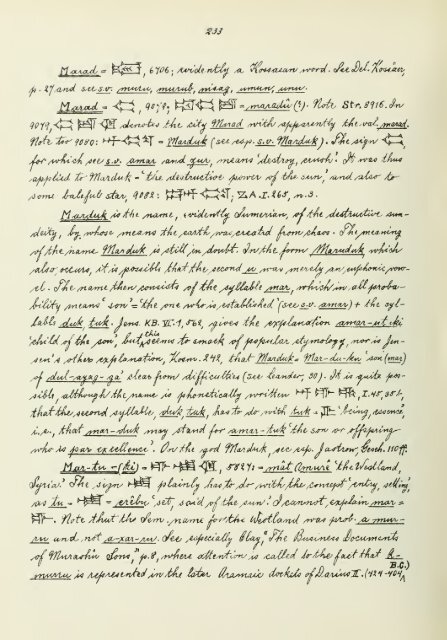 233
Marad = 𒀫𒁕, 6706; evidently a Kossaean word. See Del. Kosäer,
p. 27 and see s.v. muru, murub, nisag, umun, unu.
Marad = , 9078; = maradu (?). Note Str. 8916. In
9079, denotes the city Marad with apparently the val. marad.
Note too 9080: = Marduk (see esp. s.v. Marduk). The sign ,
for which see s.v. amar and zur, means 'destroy, crush'. It was thus
applied to Marduk = 'the destructive power of the sun,' and also to
some baleful star, 9082: ; ZA. I. 265, n. 3.
Marduk is the name, evidently Sumerian, of the destructive sun-
deity, by whose means the earth was created from chaos. The meaning
of the name Marduk is still in doubt. In the form Maruduk which
also occurs, it is possible that the second u was merely an euphonic vow-
el. The name then consists of the syllable mar, which in all proba-
bility means 'son' = 'the one who is established' (see s.v. amar) + the syl-
lable duk, tuk. Jens. KB. VI. 1, 562, gives the explanation amar-ut-ki
'child of the son', but this seems to smack of popular etymology, nor is Jen-
sen's other explanation, Kosm. 242, that Marduk = Mar-du-ku 'son (mar)
of dul-azag-ga' clear from difficulties (see Leander, 30). It is quite pos-
sible, although the name is phonetically written , I. 45, 35 b,
that the second syllable, duk, tuk, has to do with tuk = 'being, essence,'
i.e., that mar-duk may stand for amar-tuk 'the son or offspring
who is par excellence'. On the god Marduk, see esp. Jastrow, Germ. 110 ff.
Mar-tu-(ki) = , 5824; = mât Amurê 'the Westland,
Syria.' The sign plainly has to do with the concept 'entry, setting,'
as tu = = erêbu 'set, said of the sun.' I cannot explain mar =
. Note that the Sem. name for the Westland was prob. a mur-
ru and not a-xar-ru. See especially Clay, "The Business Documents
of Murashû Sons," p. 8, where attention is called to the fact that A-
murru is represented in the later Aramaic dockets of Darius II. (424-404 B.C.)